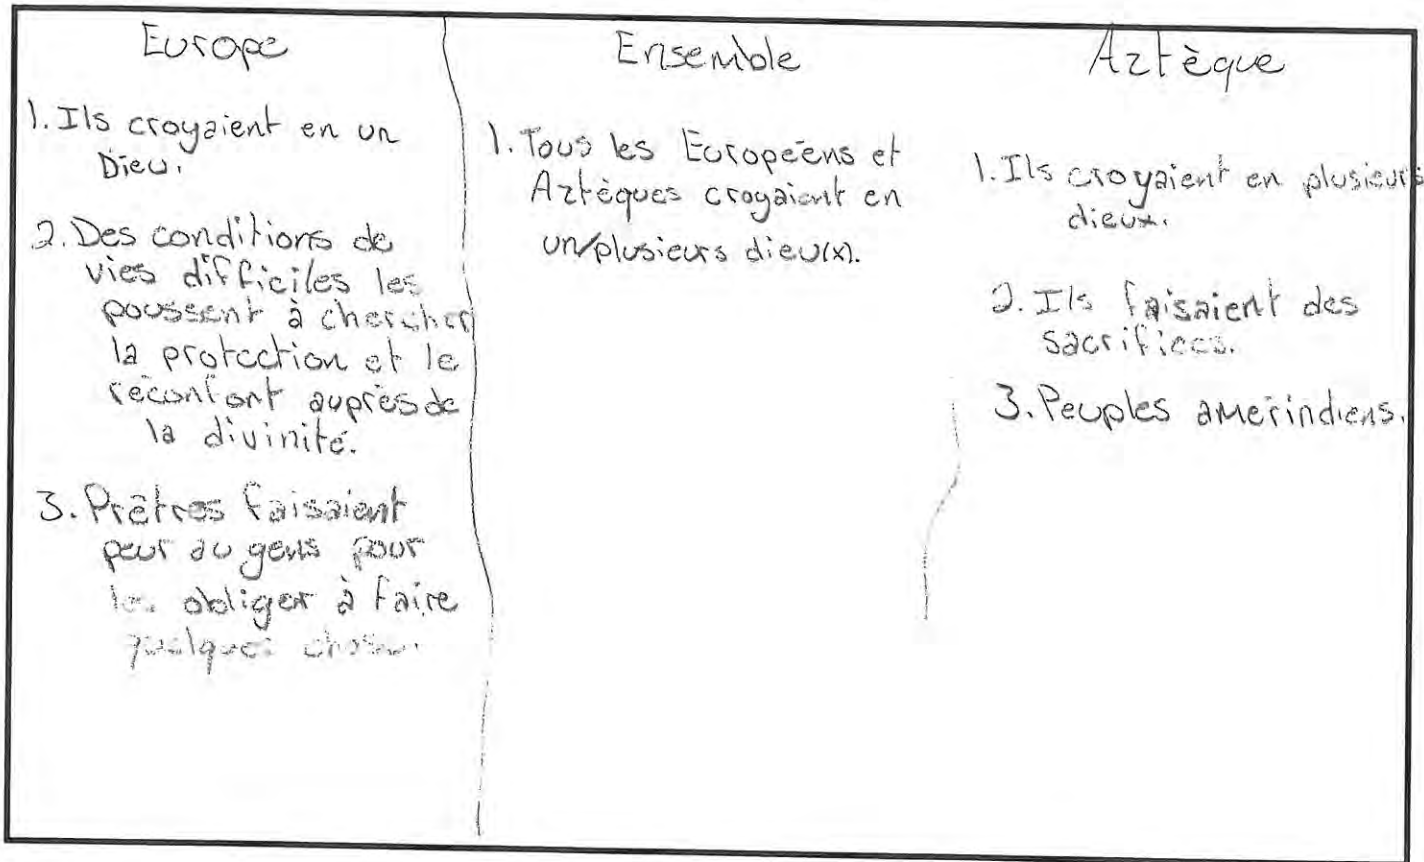 Europe
1. Ils croyaient en un
Dieu.
2. Des conditions de
vies difficiles les
poussent à chercher
la protection et le
réconfort auprès de
la divinité.
3. Prêtres faisaient
peur au gens pour
les obliger à faire
quelques choses.
Ensemble
1. Tous les Européens et
Aztèques croyaient en
un/plusieurs dieu(x).
Aztèque
1. Ils croyaient en plusieurs
dieux.
2. Ils faisaient des
sacrifices.
3. Peuples amérindiens.